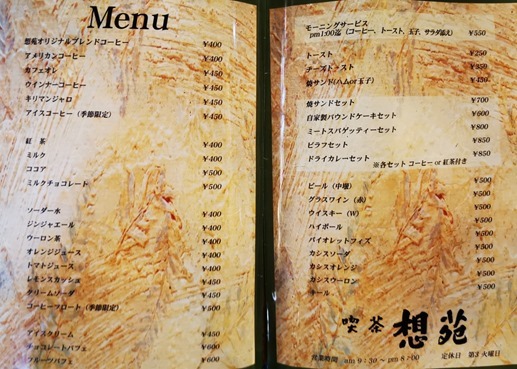 Menu
想苑オリジナルブレンドコーヒー ¥400
アメリカンコーヒー ¥400
カフェオレ ¥450
ウインナーコーヒー ¥450
キリマンジャロ ¥450
アイスコーヒー(季節限定) ¥450
紅 茶 ¥400
ミルク ¥400
ココア ¥500
ミルクチョコレート ¥500
ソーダー水 ¥400
ジンジャエール ¥400
ウーロン茶 ¥400
オレンジジュース ¥400
トマトジュース ¥400
レモンスカッシュ ¥450
クリームソーダ ¥450
コーヒーフロート(季節限定) ¥500
アイスクリーム ¥450
チョコレートパフェ ¥600
フルーツパフェ ¥600
モーニングサービス
pm1:00迄 (コーヒー、トースト、玉子、サラダ添え) ¥550
トースト ¥250
チーズトースト ¥350
焼サンド(ハムor玉子) ¥450
焼サンドセット ¥700
自家製パウンドケーキセット ¥600
ミートスパゲッティーセット ¥800
ピラフセット ¥850
ドライカレーセット ¥850
※各セット コーヒー or 紅茶付き
ビール(中壜) ¥500
グラスワイン(赤) ¥500
ウイスキー(W) ¥500
ハイボール ¥500
バイオレットフィズ ¥500
カシスソーダ ¥500
カシスオレンジ ¥500
カシスウーロン ¥500
キール ¥500
喫茶 想苑
営業時間 am 9:30 ~ pm 8:00 定休日 第3火曜日